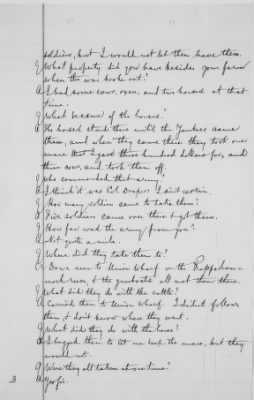 soldiers, but I would not let them have them.
Q What property did you have besides your farm
when the war broke out?
A I had some cows, oxen, and two horses at that
time.
Q What became of the horses?
A The horses stood there until the Yankees came
there, and when they came there they took one
mare that I gave three hundred dollars for, and
three cows, and took them off.
Q Who commanded that army?
A I think it was Col Draper. I aint certain.
Q How many soldiers came to take them?
A Five soldiers came over there & got them.
Q How far was the army from you?
A Not quite a mile.
Q Where did they take them to?
A Down near to Union Wharf on the Rappahan-
nock river, & the gunboats all met them there.
Q What did they do with the cattle?
A Carried them to Union Wharf. I didn't follow
them, & don't know where they went.
Q What did they do with the horse?
A I begged them to let me keep the mare, but they
would not.
Q Were they all taken at one time?
A Yes Sir.
3